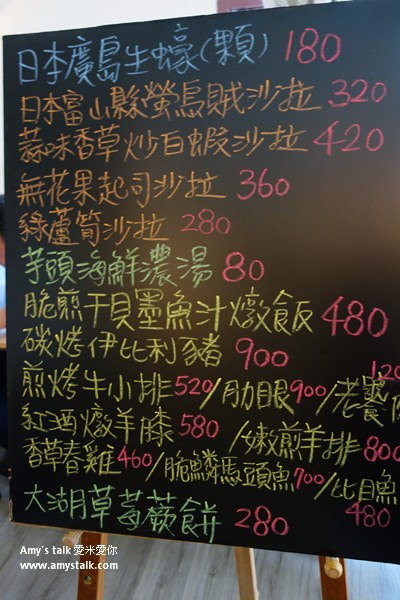 日本廣島生蠔(顆) 180
日本富山縣螢烏賊沙拉 320
蒜味香草炒白蝦沙拉 420
無花果起司沙拉 360
綠蘆筍沙拉 280
芋頭海鮮濃湯 80
脆煎干貝墨魚汁燉飯 480
碳烤伊比利豬 900
120
煎烤牛小排520/肋眼900/老饕
紅酒燉羊膝 580 /嫩煎羊排800
香草春雞460/脆鱗馬頭魚700/比目魚
480
大湖草莓蕨餅 280
Amy's talk 愛米愛你
www.amystalk.com